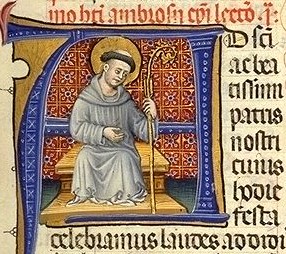 bti ambrosii epi
D sci
ac bea
tissimi
patris
nostri
cuius
hodie
festa
celebramus laudes addidi